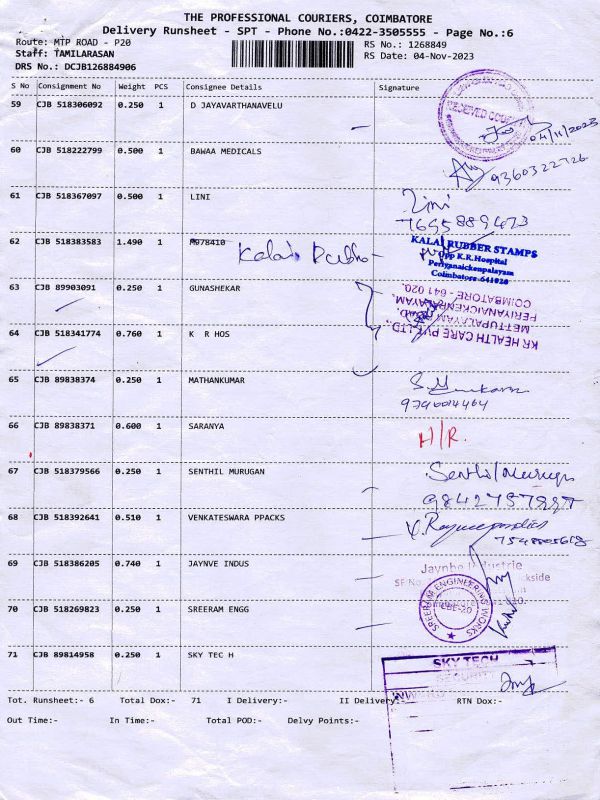 THE PROFESSIONAL COURIERS, COIMBATORE
Delivery Runsheet - SPT - Phone No.:0422-3505555 - Page No.:6
Route: MTP ROAD - P20
RS No.: 1268849
Staff: TAMILARASAN
RS Date: 04-Nov-2023
DRS No.: DCJB126884906
S No Consignment No Weight PCS Consignee Details Signature
59 CJB 518306092 0.250 1 D JAYAVARTHANAVELU
04/11/2023
60 CJB 518222799 0.500 1 BAWAA MEDICALS
9360322726
61 CJB 518367097 0.500 1 LINI Lini
7695889473
62 CJB 518383583 1.490 1 M978410 Kalai
KALAI RUBBER STAMPS
Opp K.R.Hospital
Periyanaickenpalayam
Coimbatore-641020
63 CJB 89903091 0.250 1 GUNASHEKAR
KR HEALTH CARE PVT LTD.,
METTUPALAYAM ROAD,
PERIYANAICKENPALAYAM,
COIMBATORE - 641 020.
64 CJB 518341774 0.760 1 K R HOS
65 CJB 89838374 0.250 1 MATHANKUMAR
66 CJB 89838371 0.600 1 SARANYA H/R.
67 CJB 518379566 0.250 1 SENTHIL MURUGAN Senthil Murugn
68 CJB 518392641 0.510 1 VENKATESWARA PPACKS
69 CJB 518386205 0.740 1 JAYNVE INDUS
70 CJB 518269823 0.250 1 SREERAM ENGG
SREERAM ENGINEERING WORKS
CBE-20
71 CJB 89814958 0.250 1 SKY TEC H
SKY TECH
SECURITY
Tot. Runsheet:- 6 Total Dox:- 71 I Delivery:- II Delivery:- RTN Dox:-
Out Time:- In Time:- Total POD:- Delvy Points:-